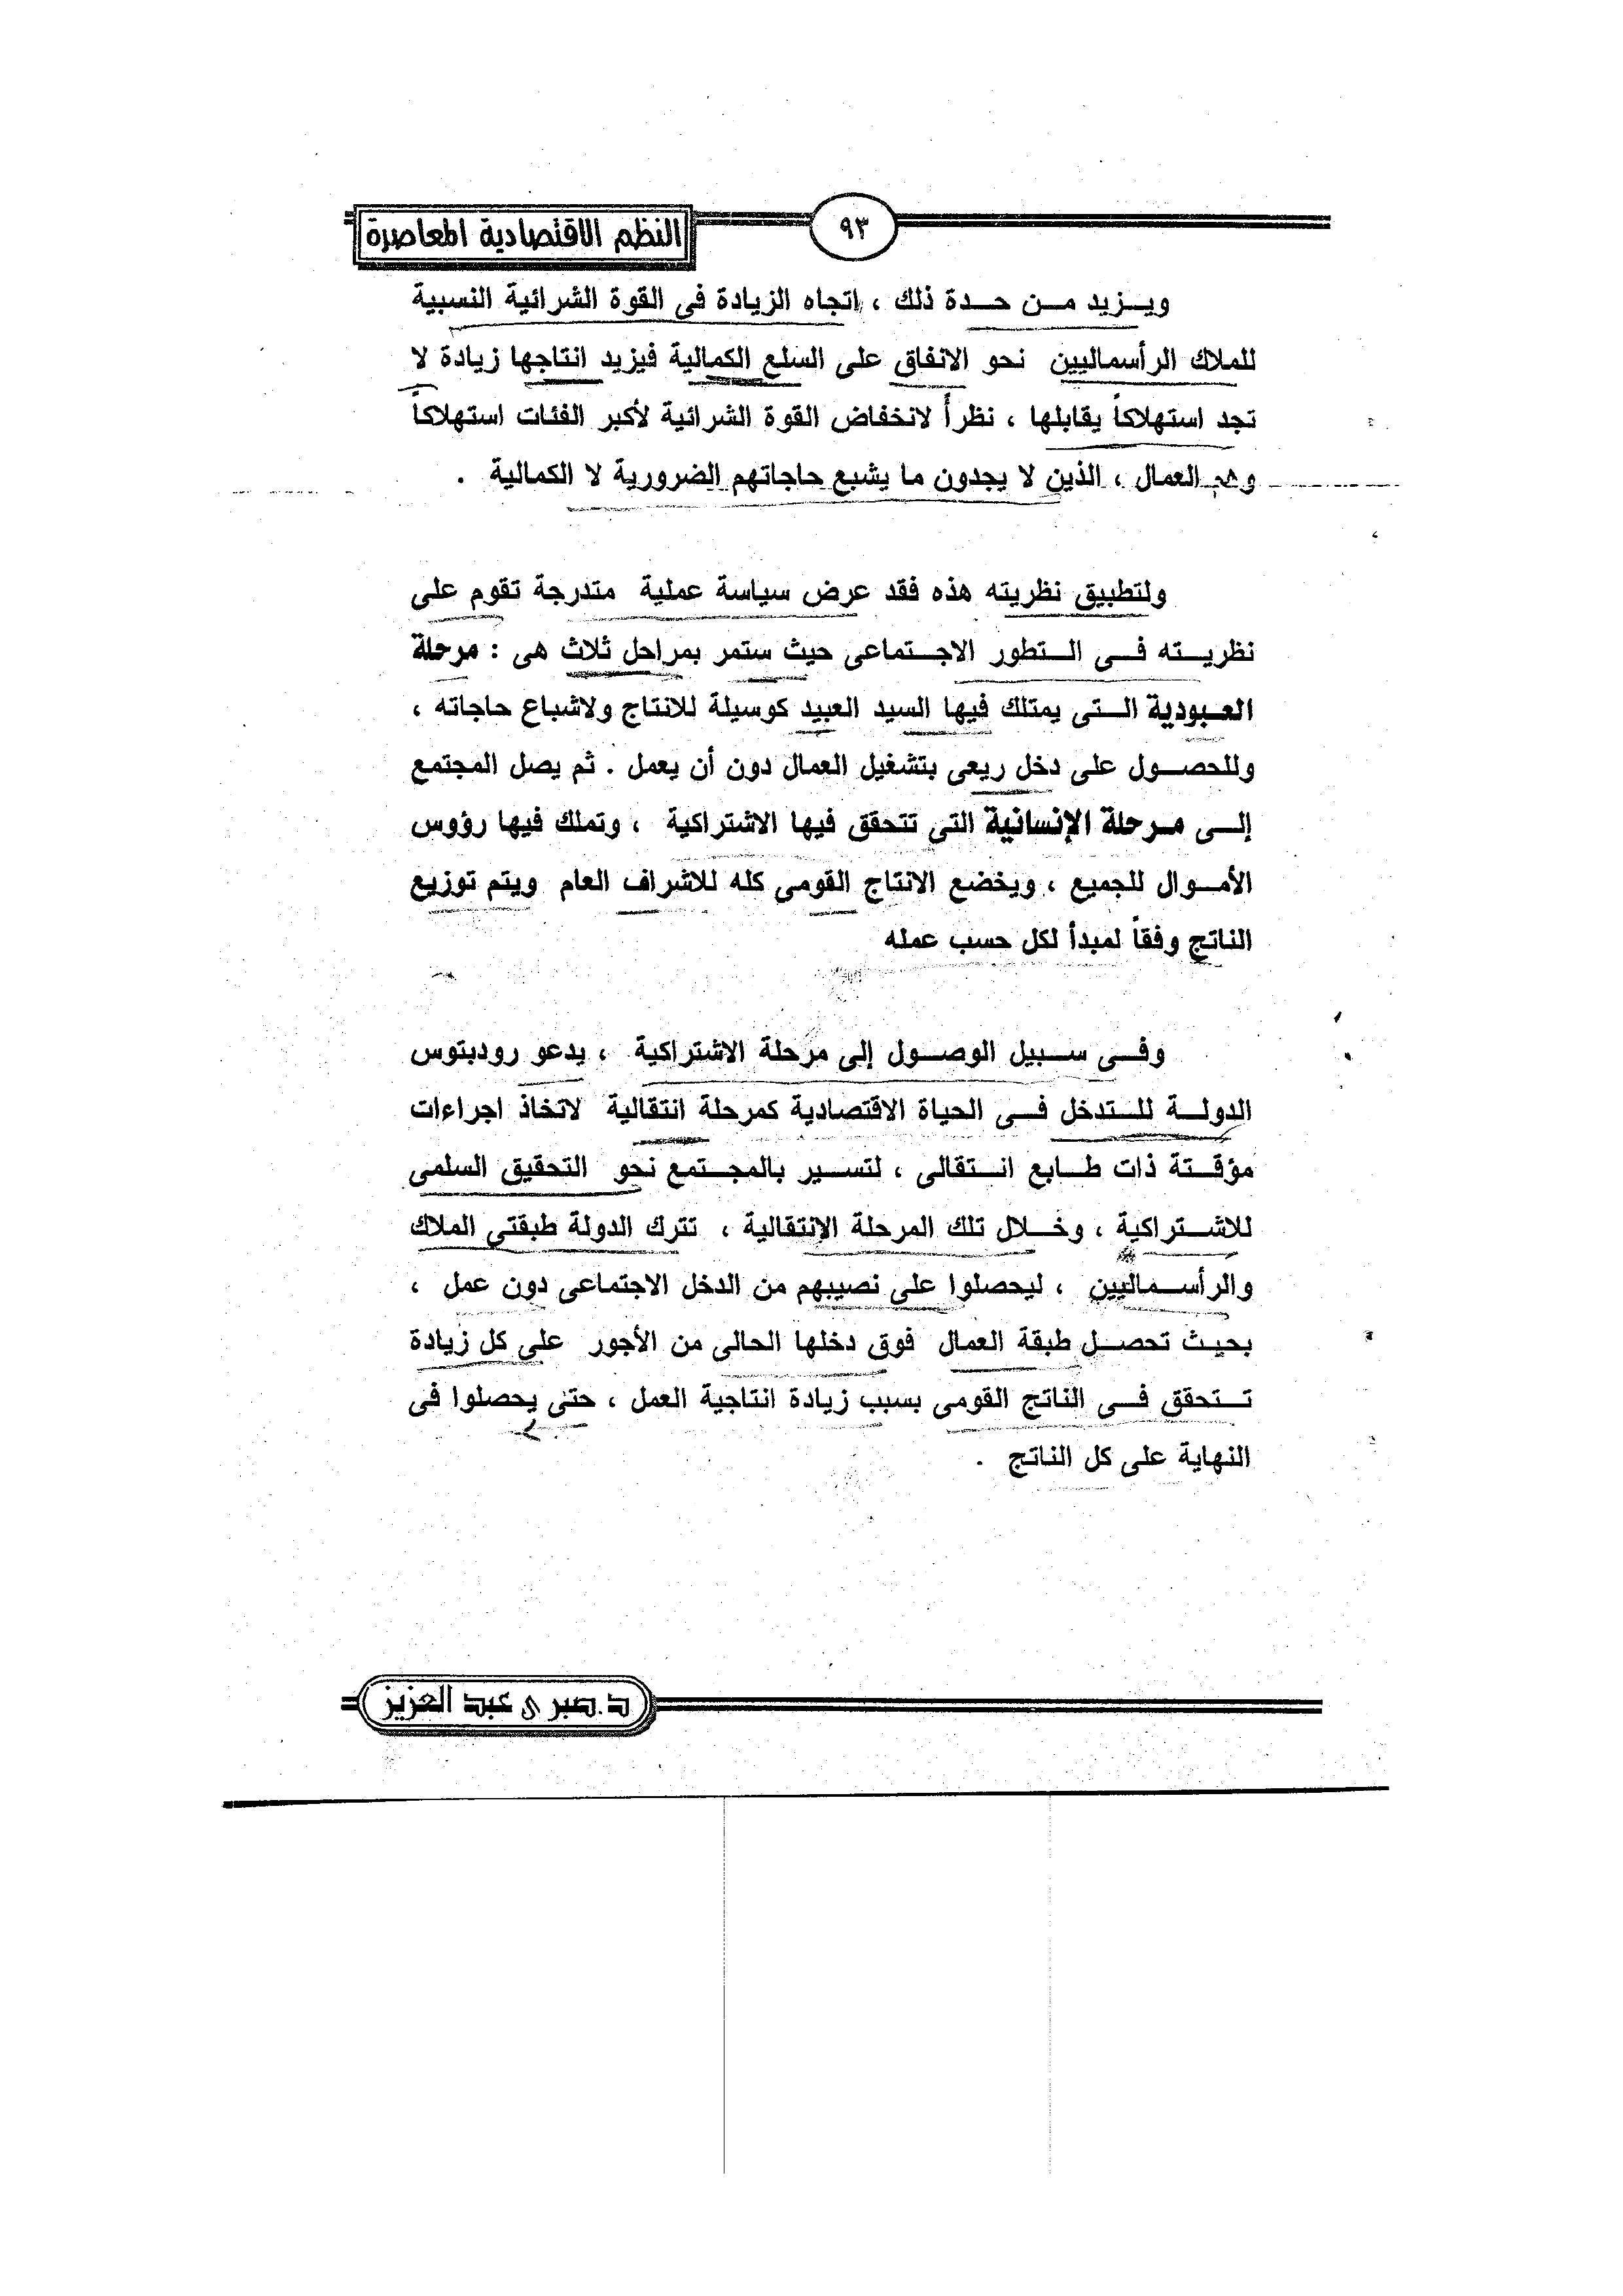 النظم الاقتصادية المعاصرة
٩٣
ويزيد من حدة ذلك ، اتجاه الزيادة فى القوة الشرائية النسبية
للملاك الرأسماليين نحو الانفاق على السلع الكمالية فيزيد انتاجها زيادة لا
تجد استهلاكاً يقابلها ، نظراً لانخفاض القوة الشرائية لأكبر الفئات استهلاكاً
وهم العمال ، الذين لا يجدون ما يشبع حاجاتهم الضرورية لا الكمالية .
ولتطبيق نظريته هذه فقد عرض سياسة عملية متدرجة تقوم على
نظريته فى التطور الاجتماعى حيث ستمر بمراحل ثلاث هى : مرحلة
العبودية التى يمتلك فيها السيد العبيد كوسيلة للانتاج ولاشباع حاجاته ،
وللحصول على دخل ريعى بتشغيل العمال دون أن يعمل . ثم يصل المجتمع
إلى مرحلة الإنسانية التى تتحقق فيها الاشتراكية ، وتملك فيها رؤوس
الأموال للجميع ، ويخضع الانتاج القومى كله للاشراف العام ويتم توزيع
الناتج وفقاً لمبدأ لكل حسب عمله
وفى سبيل الوصول إلى مرحلة الاشتراكية ، يدعو رودبتوس
الدولة للتدخل فى الحياة الاقتصادية كمرحلة انتقالية لاتخاذ اجراءات
مؤقتة ذات طابع انتقالى ، لتسير بالمجتمع نحو التحقيق السلمى
للاشتراكية ، وخلال تلك المرحلة الإنتقالية ، تترك الدولة طبقتى الملاك
والرأسماليين ، ليحصلوا على نصيبهم من الدخل الاجتماعى دون عمل ،
بحيث تحصل طبقة العمال فوق دخلها الحالى من الأجور على كل زيادة
تتحقق فى الناتج القومى بسبب زيادة انتاجية العمل ، حتى يحصلوا فى
النهاية على كل الناتج .
د.صبرى عبد العزيز